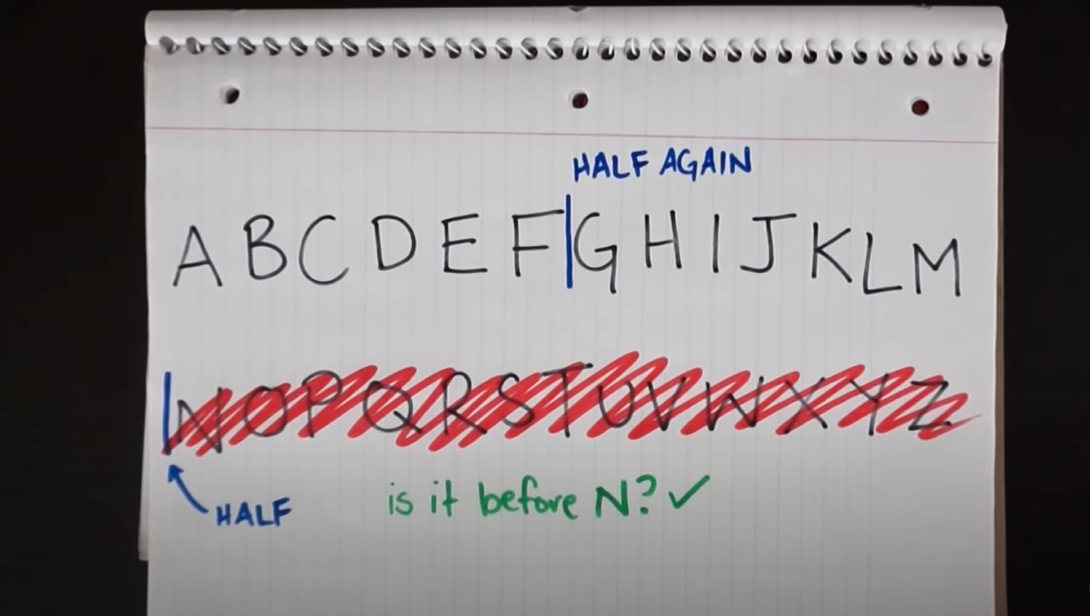 HALF AGAIN
A B C D E F | G H I J K L M
N O P Q R S T U V W X Y Z
HALF
is it before N? ✓